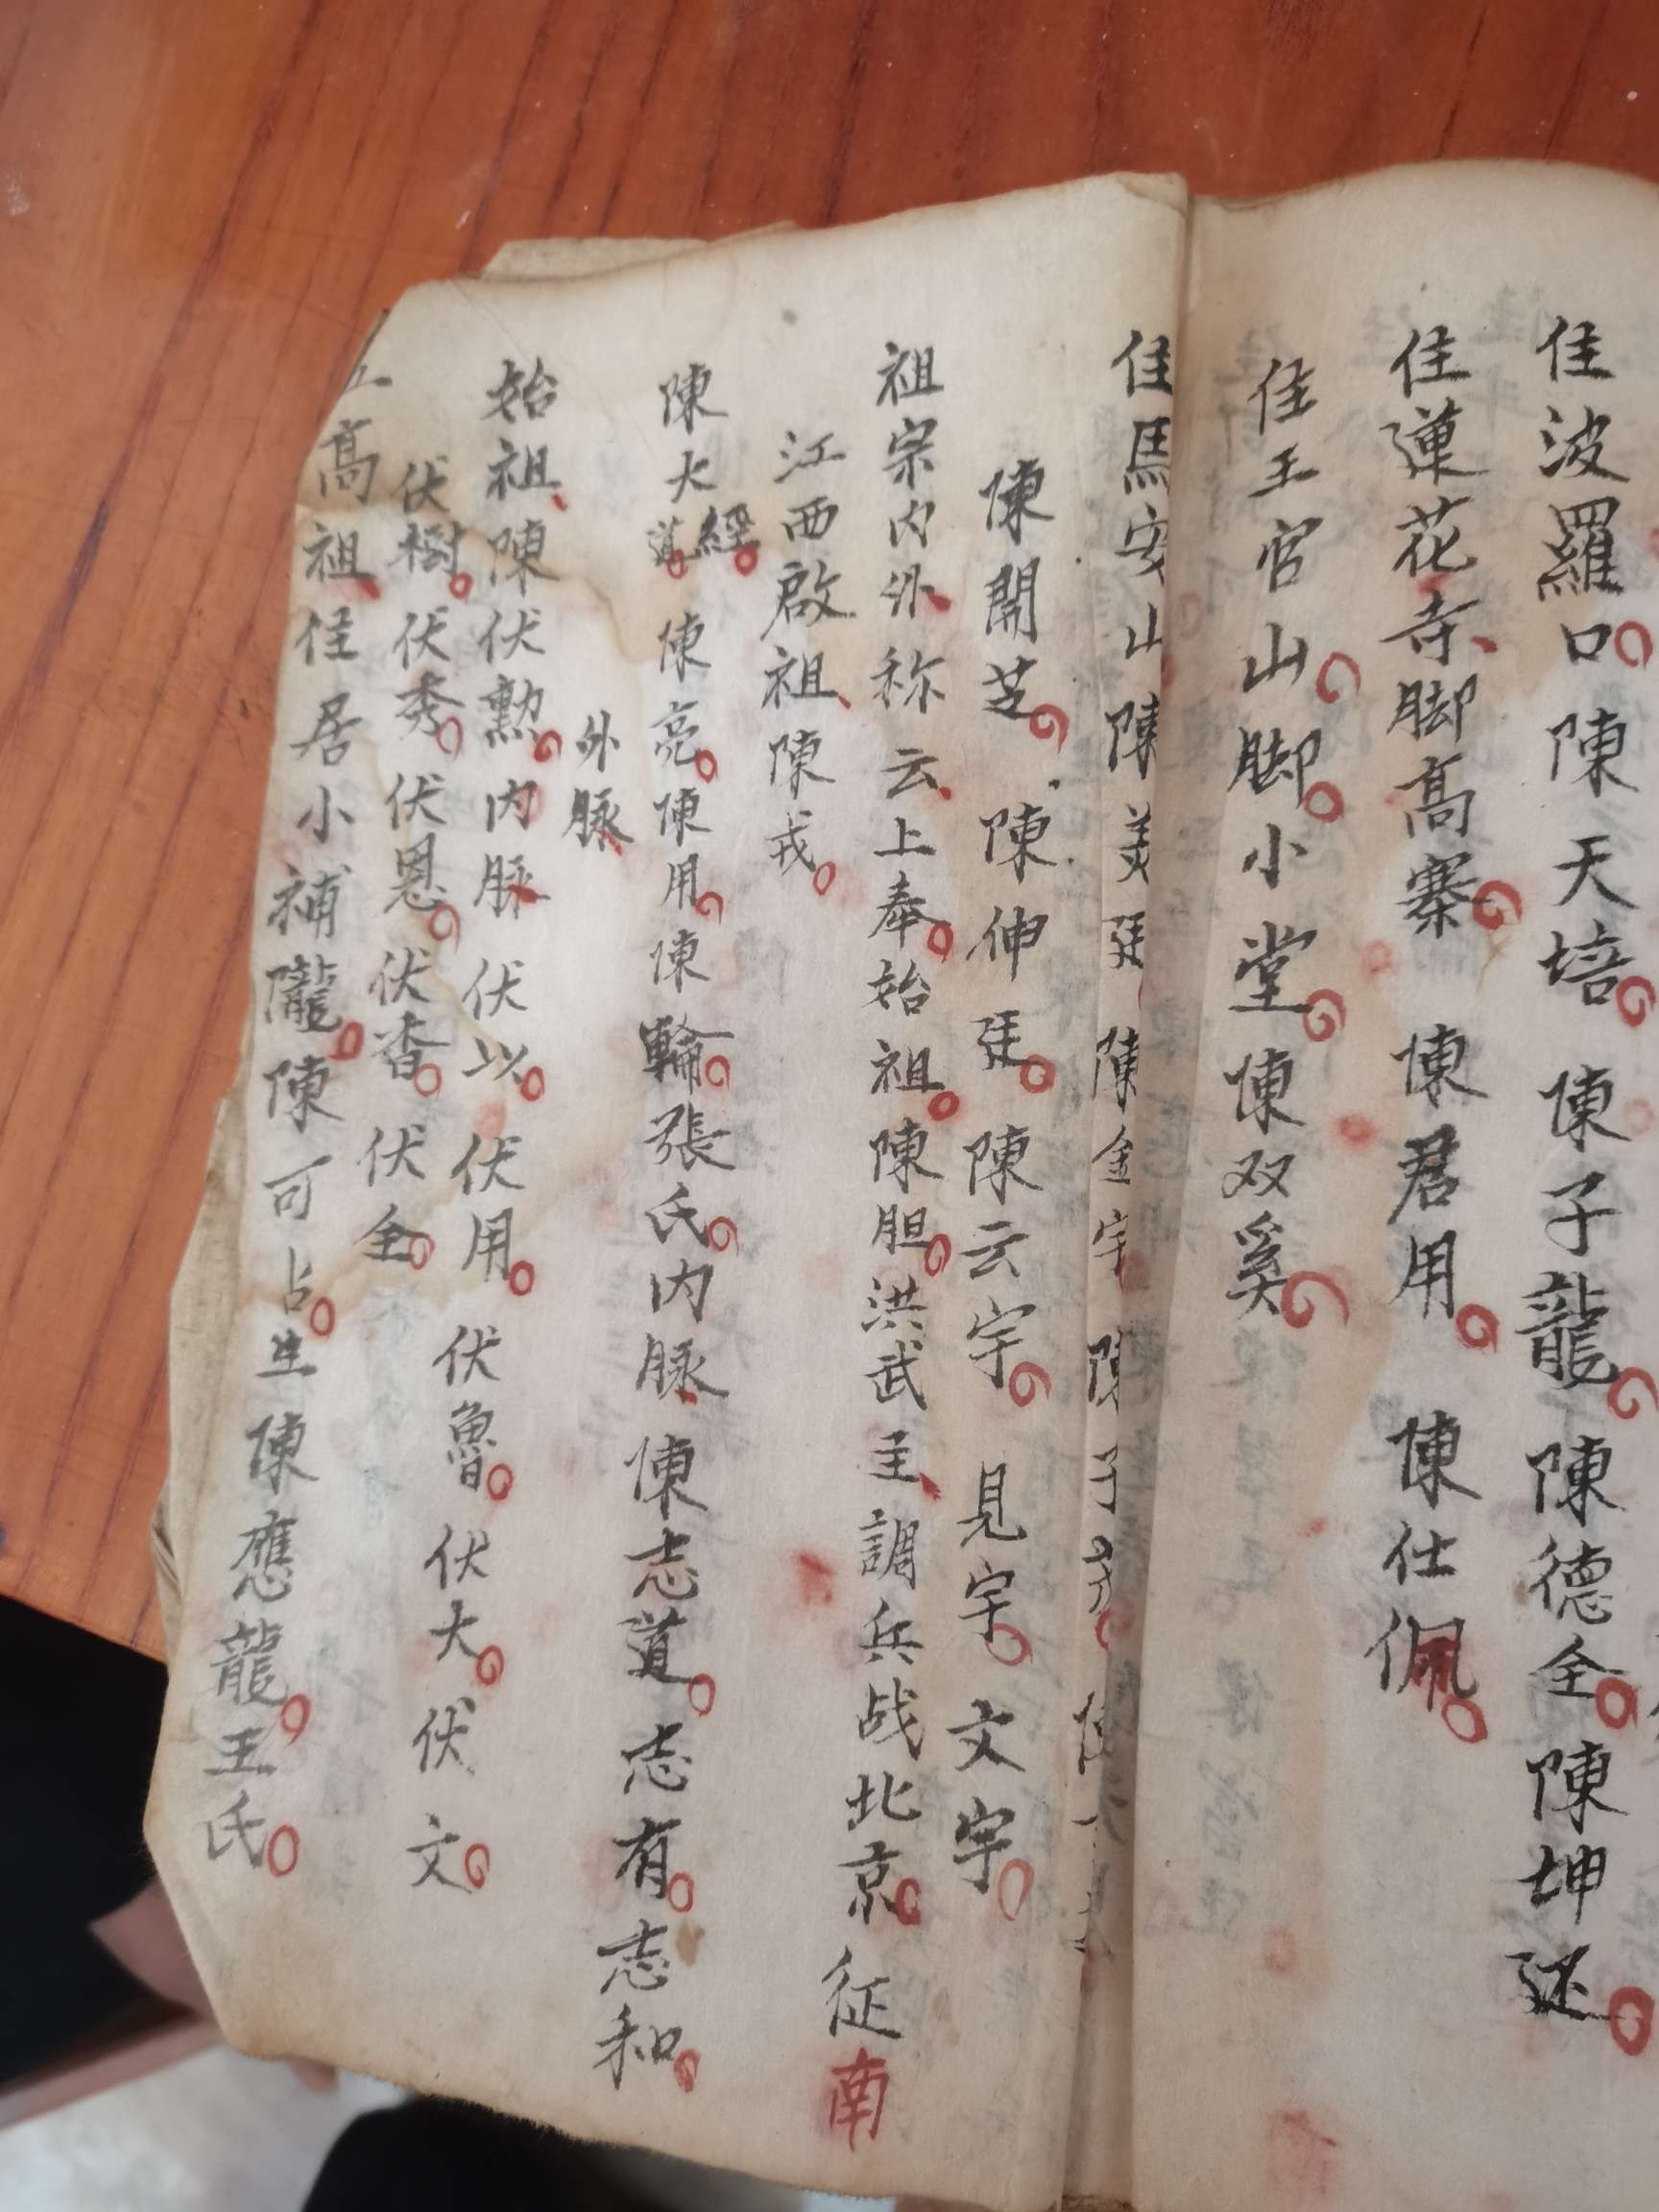 住波羅口陳天培陳子龍陳德全陳坤还
住蓮花寺脚高寨陳君用陳仕佩
住王官山脚小堂陳双奚
住馬安山陳美廷陳金宇陳子
陳開芝陳伸廷陳云宇見宇文宇
祖宗内外称云上奉始祖陳胆洪武主調兵战北京征南
江西啟祖陳戎
陳大經道陳亮陳用陳輪張氏内脉陳志道志有志和
外脉
始祖陳伏勲内脉伏以伏用伏魯伏大伏文
伏樹伏秀伏恩伏香伏全
高祖住居小補隴陳可占生陳應龍王氏